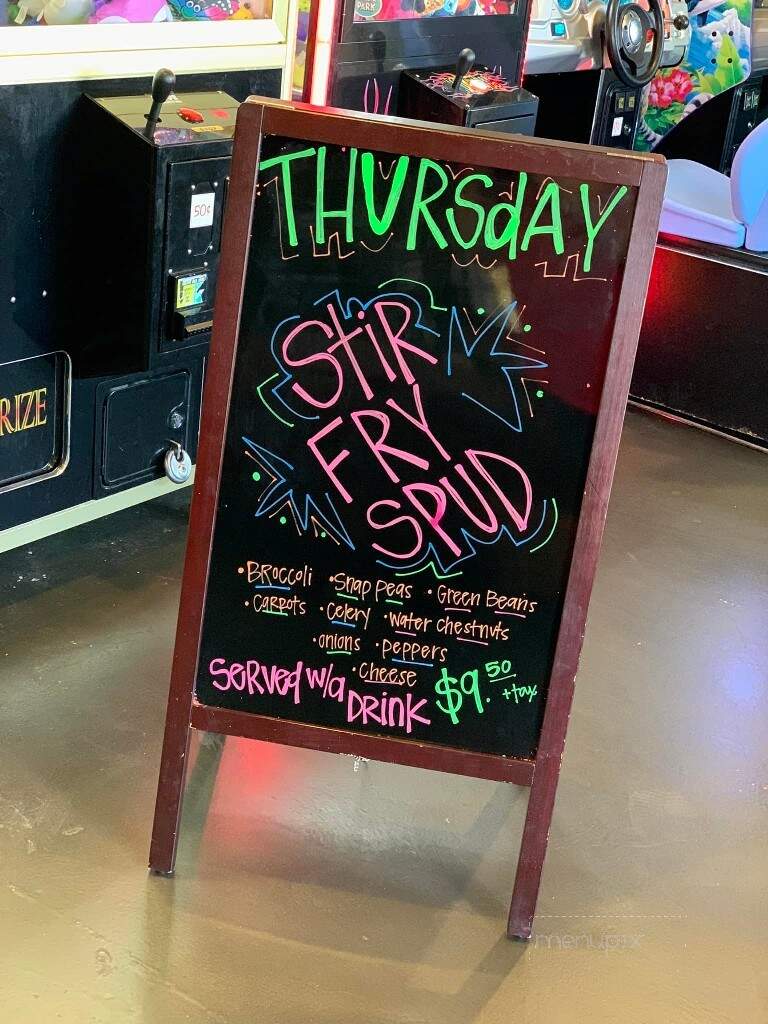 PARK
50¢
RIZE
THURSdAY
StiR
FRY
SPUD
•BRoccoli •Snap peas •Green Beans
•Carrots •Celery •Water chestnuts
•onions •peppers
•Cheese
SeRVed w/a DRinK $9.50 +tax
menupix